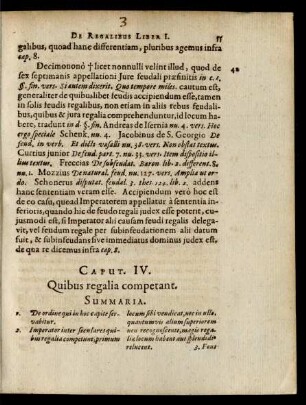 3
DE REGALIBUS LIBER I. 55
galibus, quoad hanc differentiam, pluribus agemus infra
cap. 8.
Decimononò † licet nonnulli velint illud, quod de 40
sex septimanis appellationi Jure feudali præfinitis in c. 1,
§. fin. vers. Si autem dixerit. Quo tempore miles. cautum est,
generaliter de quibuslibet feudis accipiendum esse, tamen
in solis feudis regalibus, non etiam in aliis rebus feudalibus,
quibus de jure regalia comprehenduntur, id locum ha
bere, tradunt in d. §. fin. Andreas de Isernia nu. 4. vers. Hoc
ergo speciale Schenk. nu. 4. Jacobinus de S. Georgio De
feud. in verb. Et dictis vasallis nu. 30. vers. Non obstat textus.
Curtius junior De feud. part. 7. nu. 33. vers. Item dispositio il-
lius textus, Freccius De subfeudat. Baron lib. 2. different. 8.
nu. 1. Mozzius De natural. feud. nu. 127. vers. Amplia ut or-
do. Schonerus disputat. feudal. 3. thes 122. lib. 2. addens
hanc sententiam veram esse. Accipiendum verò hoc est
de eo casu, quando quis ad Imperatorem appellat à sententia in-
ferioris, quando hic de feudo regali judex esse potest, cu-
jusmodi est, si Imperator alii causam feudi regalis delega-
vit, vel feudum regale per subinfeudationem alii datum
suit, & subinfeudans sive immediatus dominus judex est.
de qua re dicemus infra cap. 8.
CAPUT. IV.
Quibus regalia competant.
SUMMARIA.
1. De ordine qui in hoc capite ser-
vabitur.
2. Imperator inter sientes qui-
bus regalia competant, primum
locum sibi vendicat, nec in ullo,
quantumvis alium superiorem
non recognoscente, magis rega-
lia locum habent aut splendide
relucent.
3. Fons